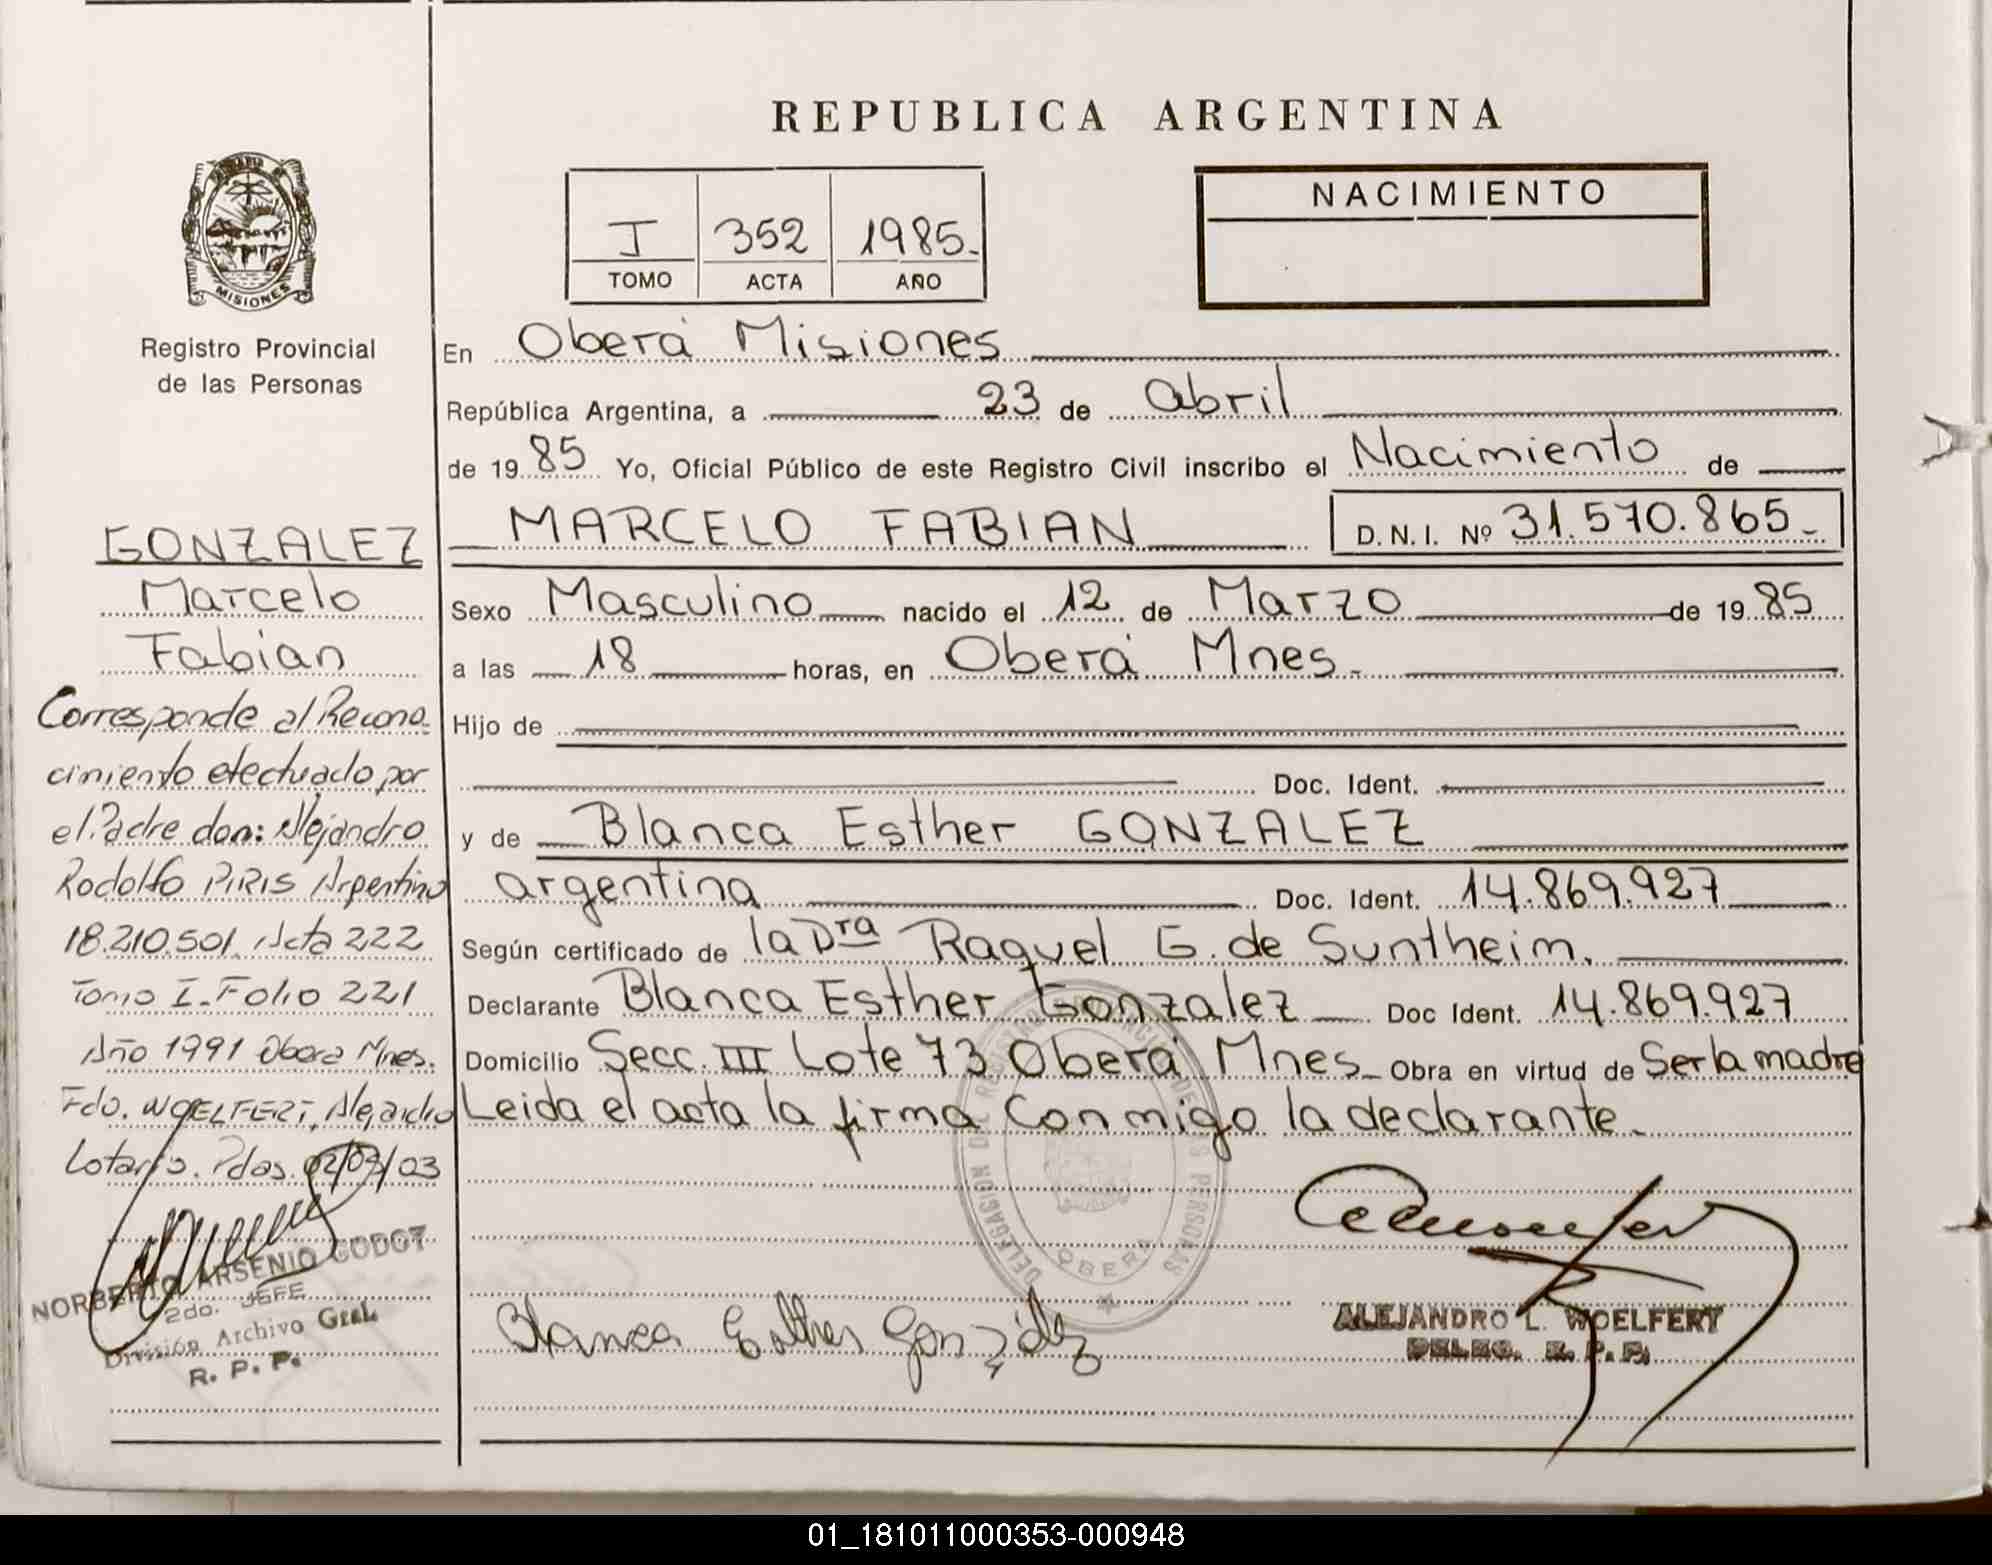 REPUBLICA ARGENTINA
MISIONES
Registro Provincial
de las Personas
I 352 1985.-
TOMO ACTA AÑO
NACIMIENTO
En Oberá Misiones
República Argentina, a 23 de abril
de 1985 Yo, Oficial Público de este Registro Civil inscribo el Nacimiento de
MARCELO FABIAN D.N.I. Nº 31.570.865.-
Sexo Masculino nacido el 12 de Marzo de 1985
a las 18 horas, en Oberá Mnes.-
Hijo de
Doc. Ident.
y de Blanca Esther GONZALEZ
argentina Doc. Ident. 14.869.927
Según certificado de la Dra Raquel G. de Suntheim.
Declarante Blanca Esther Gonzalez Doc Ident. 14.869.927
Domicilio Secc. III Lote 73 Oberá Mnes.- Obra en virtud de Ser la madre
Leida el acta la firma conmigo la declarante.
GONZALEZ
Marcelo
Fabian
Corresponde al Recono-
cimiento efectuado por
el Padre don: Alejandro
Rodolfo PIRIS Argentino
18.210.501. Acta 222
Tomo I. Folio 221
Año 1991 Obera Mnes.
Fdo. WOELFERT, Alejandro
Lotario. Pdas. 02/09/03
NORBERTO ARSENIO GODOY
2do. JEFE
División Archivo Gral.
R. P. P.
DELEGACION DEL REGISTRO PERSONAS
OBERA
Blanca Esther González
ALEJANDRO L. WOELFERT
DELEG. R. P. P.
01_181011000353-000948